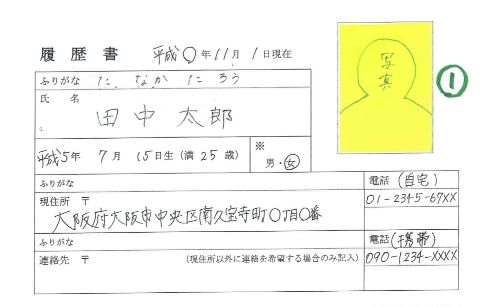 履歴書 平成〇年11月1日現在
写真
①
ふりがな たなかたろう
氏名
田中太郎
平成5年7月15日生(満25歳)
※
男・女
ふりがな
電話(自宅)
現住所 〒
01-2345-67XX
大阪府大阪市中央区南久宝寺町〇丁目〇番
ふりがな
電話(携帯)
連絡先 〒 (現住所以外に連絡を希望する場合のみ記入)
090-1234-XXXX